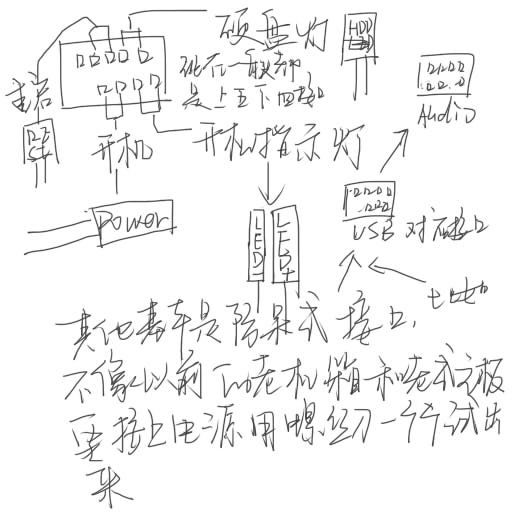 硬盘灯
HDD
LED
现在一般都
是上五下四接口
重启
RE
ST
开机
开机指示灯
AUdiO
Power
LED-
LED+
USB 对应接口
其他基本是防呆式接口,
不像以前的老机箱和老式主板
要接上电源用螺丝刀一个个试出
来